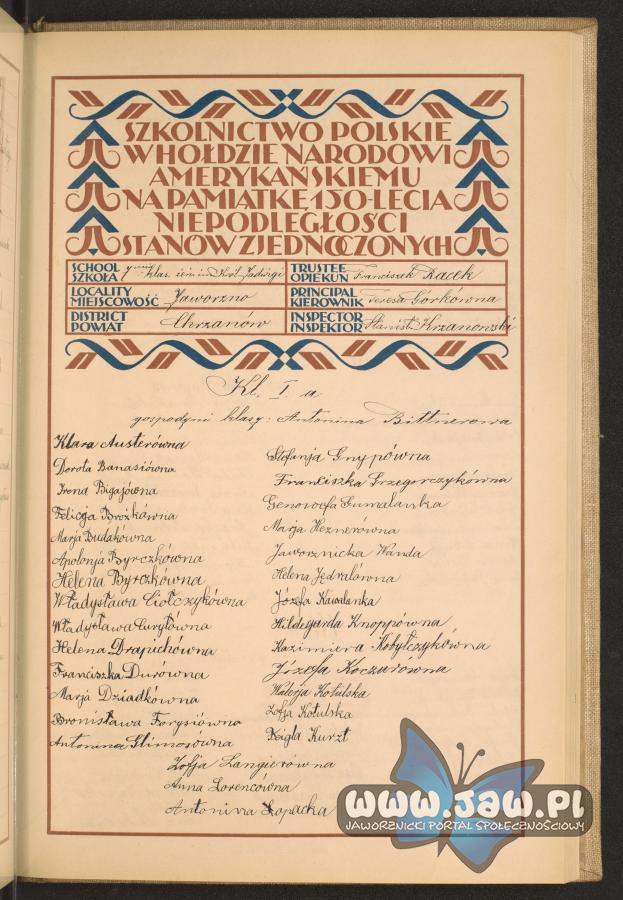 SZKOLNICTWO POLSKIE
W HOŁDZIE NARODOWI
AMERYKAŃSKIEMU
NA PAMIĄTKĘ 150-LECIA
NIEPODLEGŁOŚCI
STANÓW ZJEDNOCZONYCH
SCHOOL
SZKOŁA 7 klas. żeń im Król. Jadwigi
TRUSTEE
OPIEKUN Franciszek Racek
LOCALITY
MIEJSCOWOŚĆ Jaworzno
PRINCIPAL
KIEROWNIK Teresa Górkówna
DISTRICT
POWIAT Chrzanów
INSPECTOR
INSPEKTOR Stanisł. Krzanowski
Kl. I. a
gospodyni klasy: Antonina Bittnerowa
Klara Austerówna
Dorota Banasiówna
Irena Bigajówna
Felicja Brożkówna
Marja Dudakówna
Apolonja Byrczkówna
Helena Byrczkówna
Władysława Ciołczykówna
Władysława Curyłówna
Helena Drapuchówna
Franciszka Durówna
Marja Dziadkówna
Bronisława Forysiówna
Antonina Glimosówna
Stefanja Gnypówna
Franciszka Grzegorczykówna
Genowefa Gumalanka
Marja Heznerówna
Jaworznicka Wanda
Helena Jedralówna
Józefa Kawalanka
Hildegarda Knoppówna
Kazimiera Kobyłczykówna
Józefa Koczurówna
Walerja Kotulska
Zofja Kotulska
Rajgla Kurzt
Zofja Langierówna
Anna Lorencówna
Antonina Łopacka
www.JAW.PL
JAWORZNICKI PORTAL SPOŁECZNOŚCIOWY